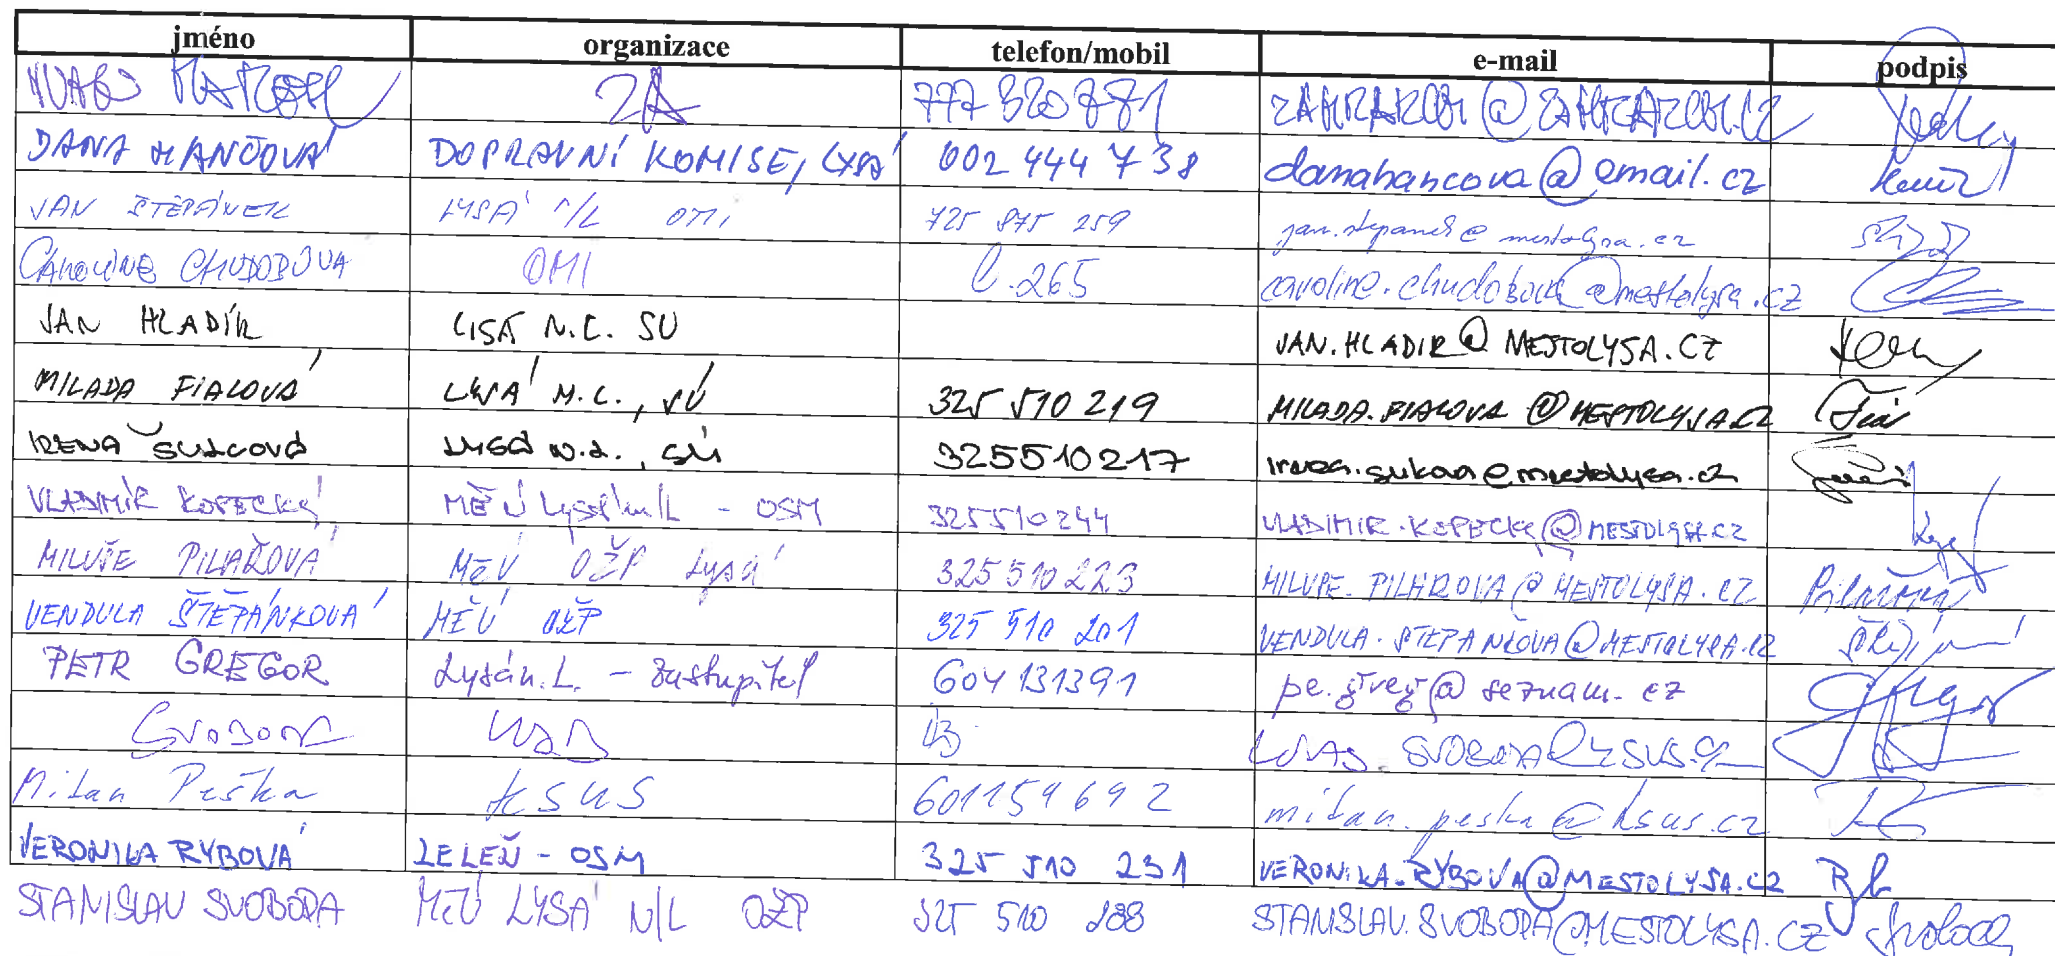 jméno organizace telefon/mobil e-mail podpis
2A 777 320 781
DANA HANČOVÁ DOPRAVNÍ KOMISE, LYSÁ 602 444 738 danahancova@email.cz
JAN ŠTĚPÁNEK LYSÁ N/L OMI 725 875 259 jan.stepanek@mestolysa.cz
CAROLINE CHUDOBOVA OMI l.265 caroline.chudobova@mestolysa.cz
JAN HLADÍK LISÁ N.L. SU JAN.HLADIK@MESTOLYSA.CZ
MILADA FIALOVÁ LYSÁ N.L., SÚ 325 510 219 MILADA.FIALOVA@MESTOLYSA.CZ
IRENA ŠULCOVÁ LYSÁ N.L., SÚ 325510217 @mestolysa.cz
VLADIMÍR KOPECKÝ MĚÚ Lysá n/L - OSM 325510244 VLADIMIR.KOPECKY@MESTOLYSA.CZ
MILUŠE PILAŘOVÁ MěÚ OŽP Lysá 325 510 223 MILUSE.PILAROVA@MESTOLYSA.CZ Pilařová
VENDULA ŠTĚPÁNKOVÁ MĚÚ OŽP 325 510 201 VENDULA.STEPANKOVA@MESTOLYSA.CZ
PETR GREGOR Lysá n.L. - Zastupitel 604 131391 pe.greg@seznam.cz
SVOBODA
Milan Peška KSUS 601159692 milan.peska@ksus.cz
VERONIKA RYBOVÁ ZELEŇ - OSM 325 510 231 VERONIKA.RYBOVA@MESTOLYSA.CZ
STANISLAV SVOBODA MěÚ LYSÁ N/L OŽP 325 510 288 STANISLAV.SVOBODA@MESTOLYSA.CZ Svoboda